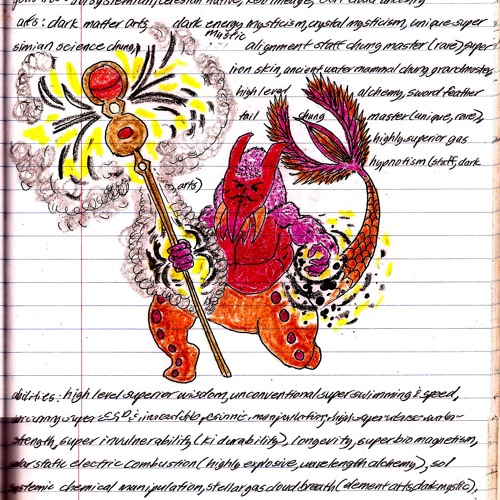 arts: dark matter arts, dark energy mysticism, crystal mysticism, unique super
mystic
simian science chung, alignment staff chung master (rare), super
iron skin, ancient water mammal chung, grandmaster,
high level alchemy, sword feather
tail chung master (unique, rare),
highly superior gas
hypnotism (staff, dark
arts)
abilities: high level superior wisdom, unconventional super swimming & speed,
strength, super invulnerability (Ki durability), longevity, super bio magnetism,
static electric combustion (highly explosive, wavelength alchemy), sol
systemic chemical manipulation, stellar gas cloud breath (element arts, dark mystic),